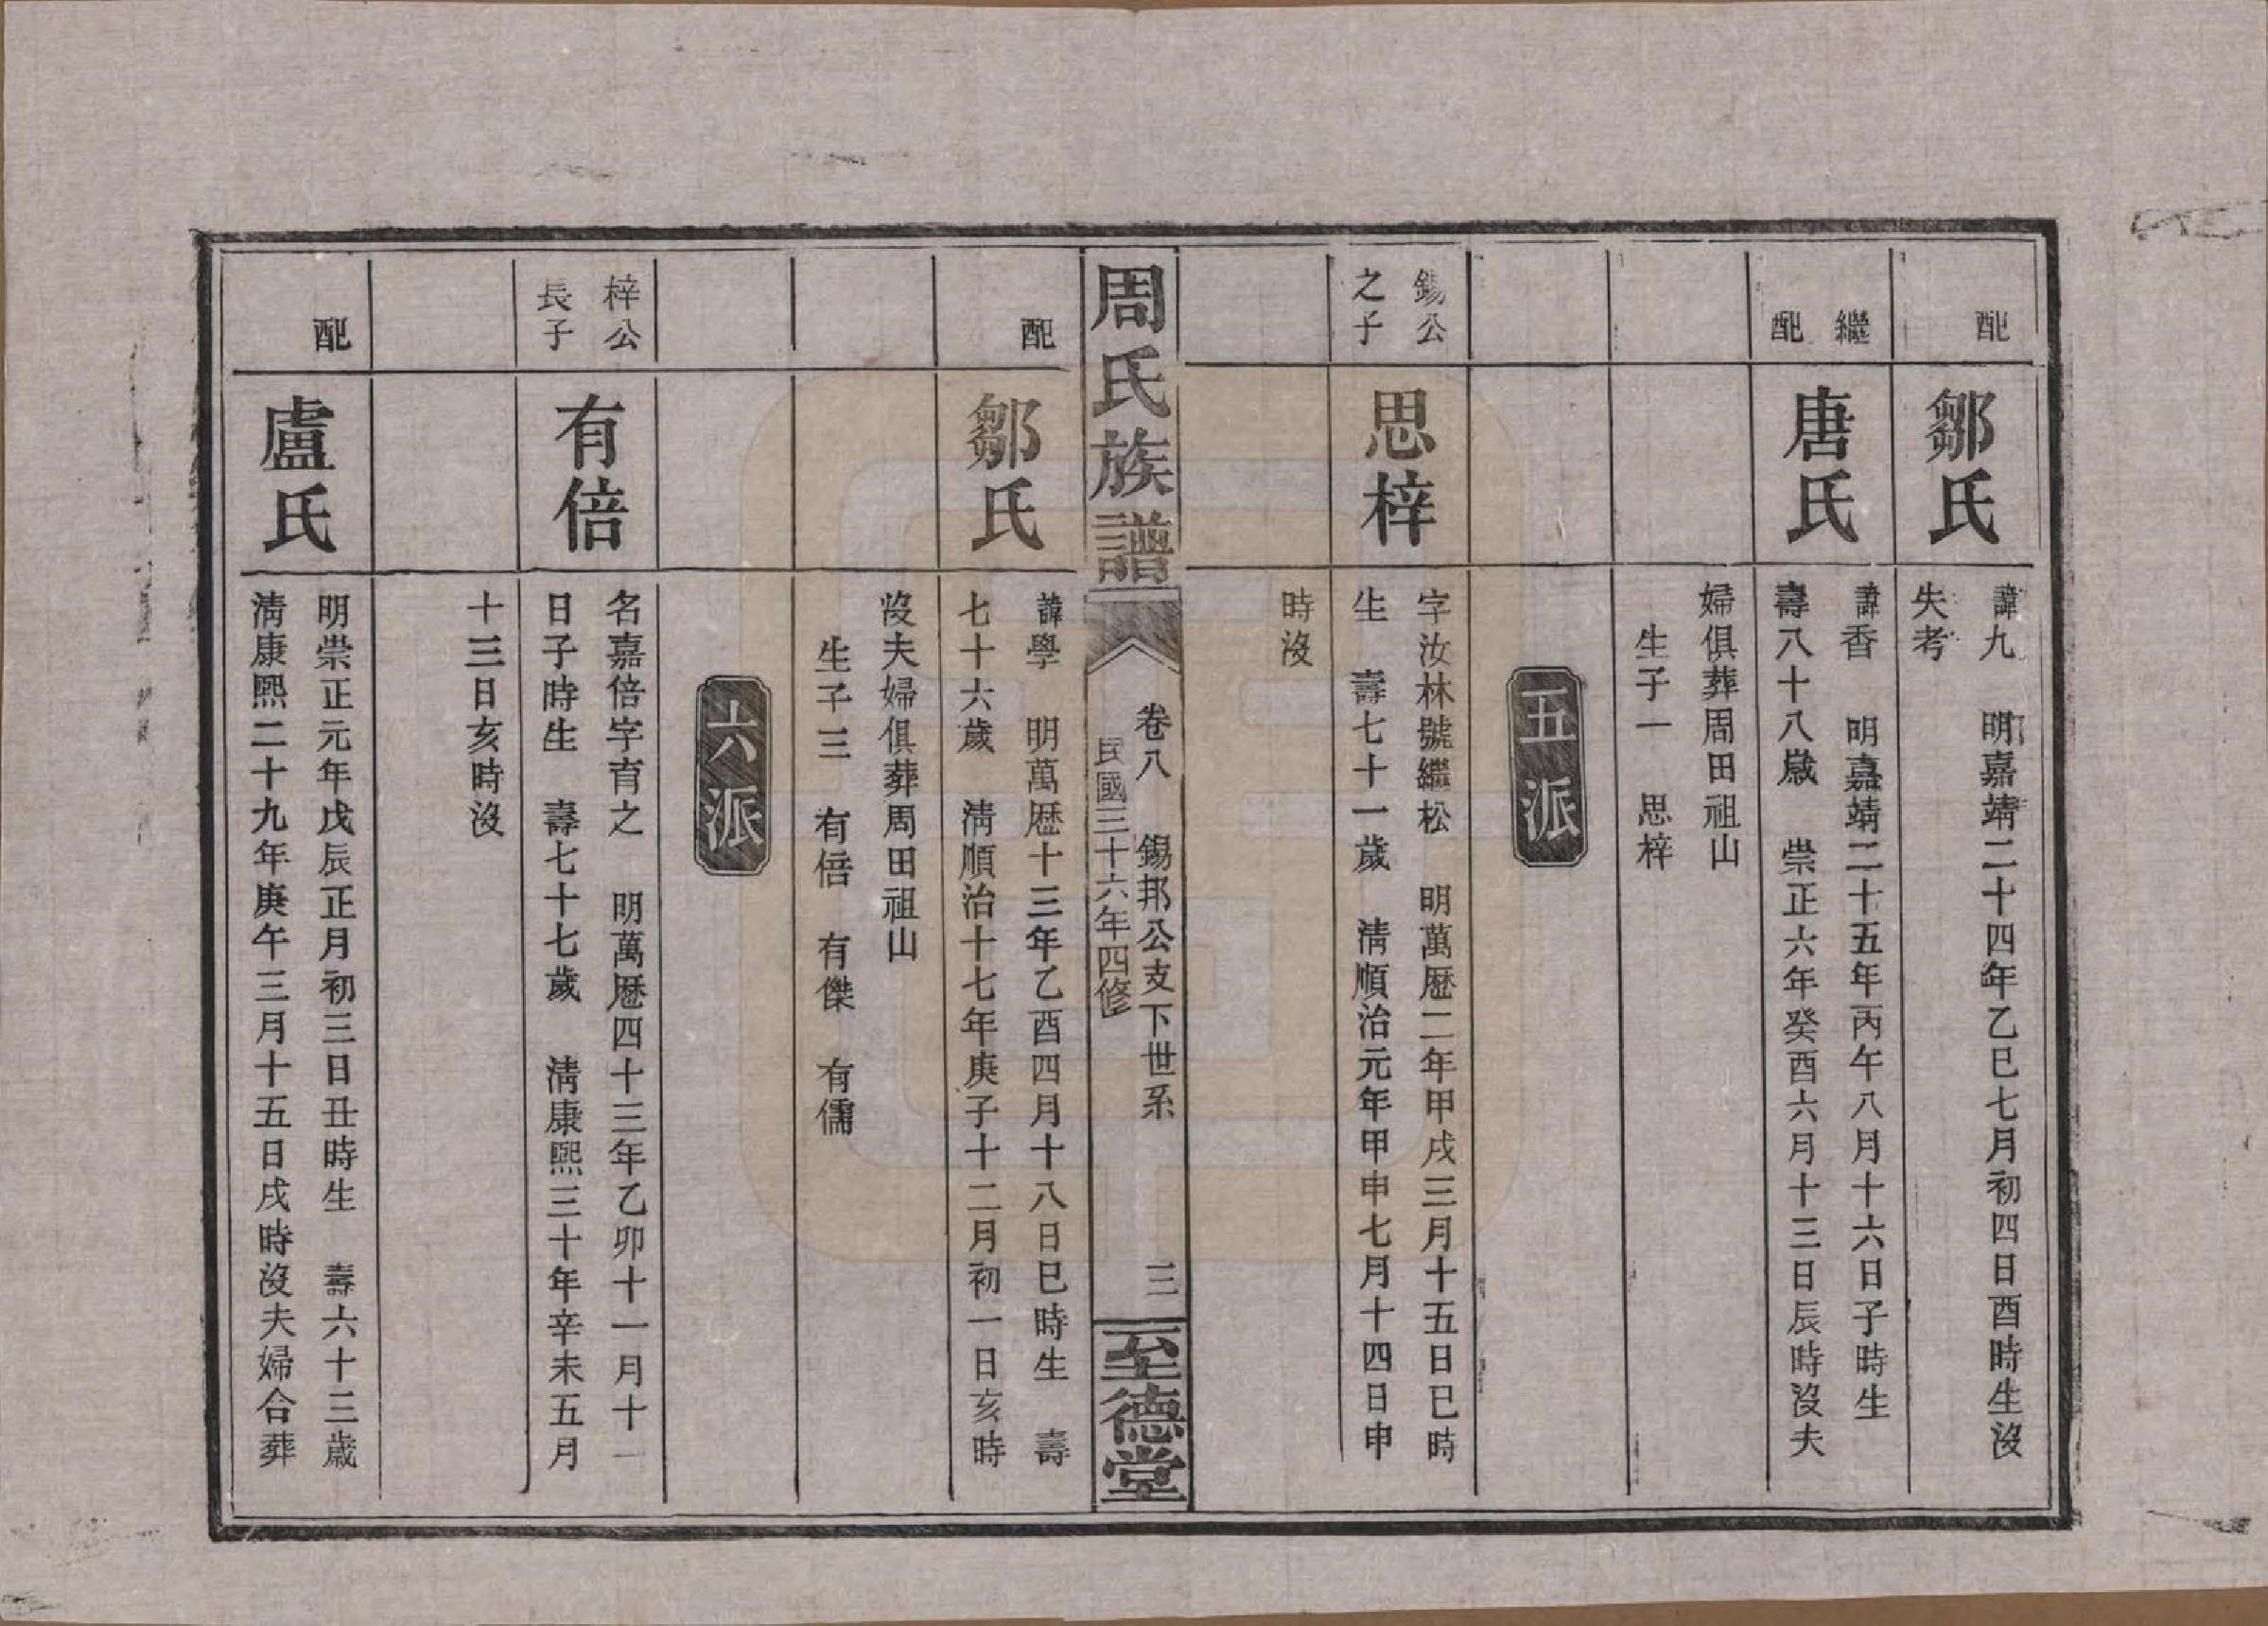 配
鄒氏
諱九　明嘉靖二十四年乙巳七月初四日酉時生沒
失考
繼
配
唐氏
諱香　明嘉靖二十五年丙午八月十六日子時生
壽八十八歲　崇正六年癸酉六月十三日辰時沒夫
婦俱葬周田祖山
生子一　思梓
五派
錫公
之子
思梓
字汝林號繼松　明萬歷二年甲戌三月十五日巳時
生　壽七十一歲　淸順治元年甲申七月十四日申
時沒
周氏族譜
卷八　錫邦公支下世系　三
民國三十六年四修
至德堂
配
鄒氏
諱學　明萬歷十三年乙酉四月十八日巳時生　壽
七十六歲　淸順治十七年庚子十二月初一日亥時
沒夫婦俱葬周田祖山
生子三　有倍　有傑　有儒
六派
梓公
長子
有倍
名嘉倍字育之　明萬歷四十三年乙卯十一月十一
日子時生　壽七十七歲　淸康熙三十年辛未五月
十三日亥時沒
配
盧氏
明崇正元年戊辰正月初三日丑時生　壽六十三歲
淸康熙二十九年庚午三月十五日戌時沒夫婦合葬